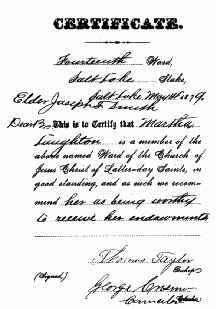 CERTIFICATE.
Fourteenth Ward,
Salt Lake Stake,
Salt Lake May 1st 1879.
Elder Joseph F. Smith
Dear Bro, This is to Certify that Martha
Turighton is a member of the
above named Ward of the Church of
Jesus Christ of Latter-day Saints, in
good standing, and as such we recom-
mend her as being worthy
to receive her endowments
Thomas Taylor
(Signed.) Bishop
George